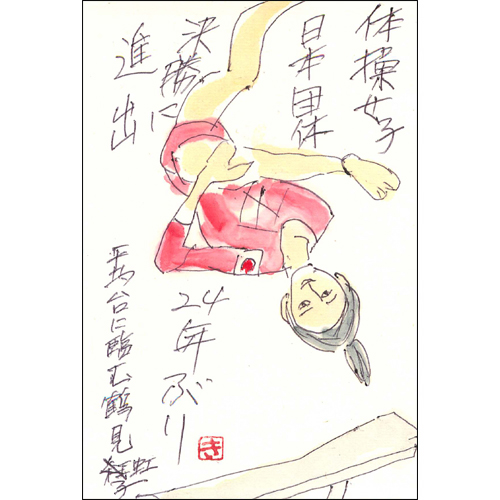 体操女子
日本団体
決勝に
進出
24年ぶり
平均台に臨む鶴見
虹子
き